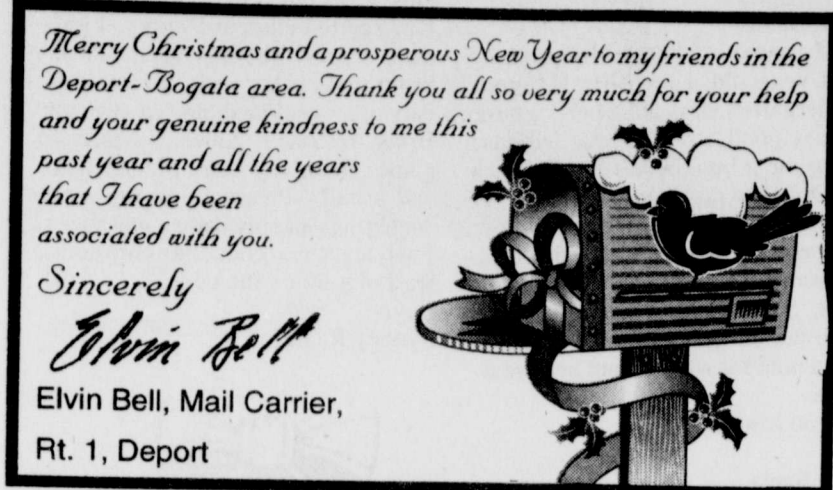 Merry Christmas and a prosperous New Year to my friends in the
Deport-Bogata area. Thank you all so very much for your help
and your genuine kindness to me this
past year and all the years
that I have been
associated with you.
Sincerely
Elvin Bell
Elvin Bell, Mail Carrier,
Rt. 1, Deport